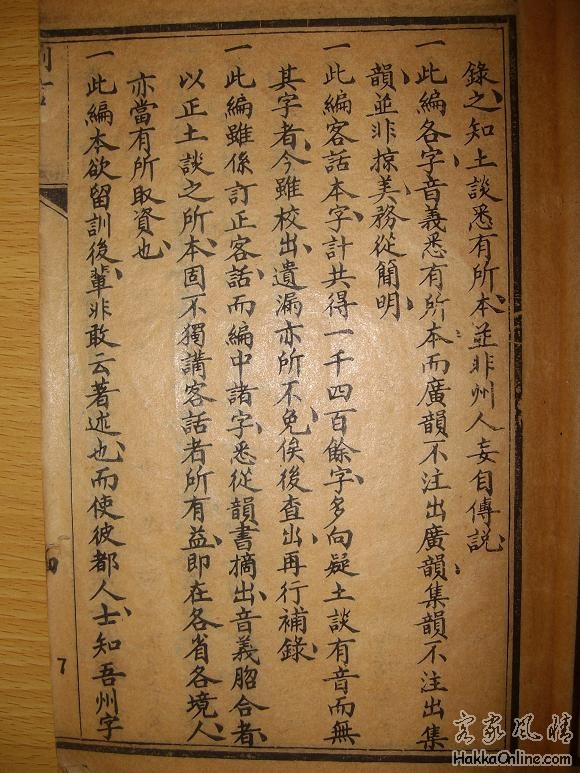 錄之知土談悉有所本並非州人妄自傳說
一此編各字音義悉有所本而廣韻不注出廣韻集韻不注出集
韻並非掠美務從簡明
一此編客話本字計共得一千四百餘字多向疑土談有音而無
其字者今雖校出遺漏亦所不免俟後查出再行補錄
一此編雖係訂正客話而編中諸字悉從韻書摘出音義脗合者
以正土談之所本固不獨講客話者所有益即在各省各境人
亦當有所取資也
一此編本欲留訓後輩非敢云著述也而使彼都人士知吾州字
7
客家風情
HakkaOnline.com